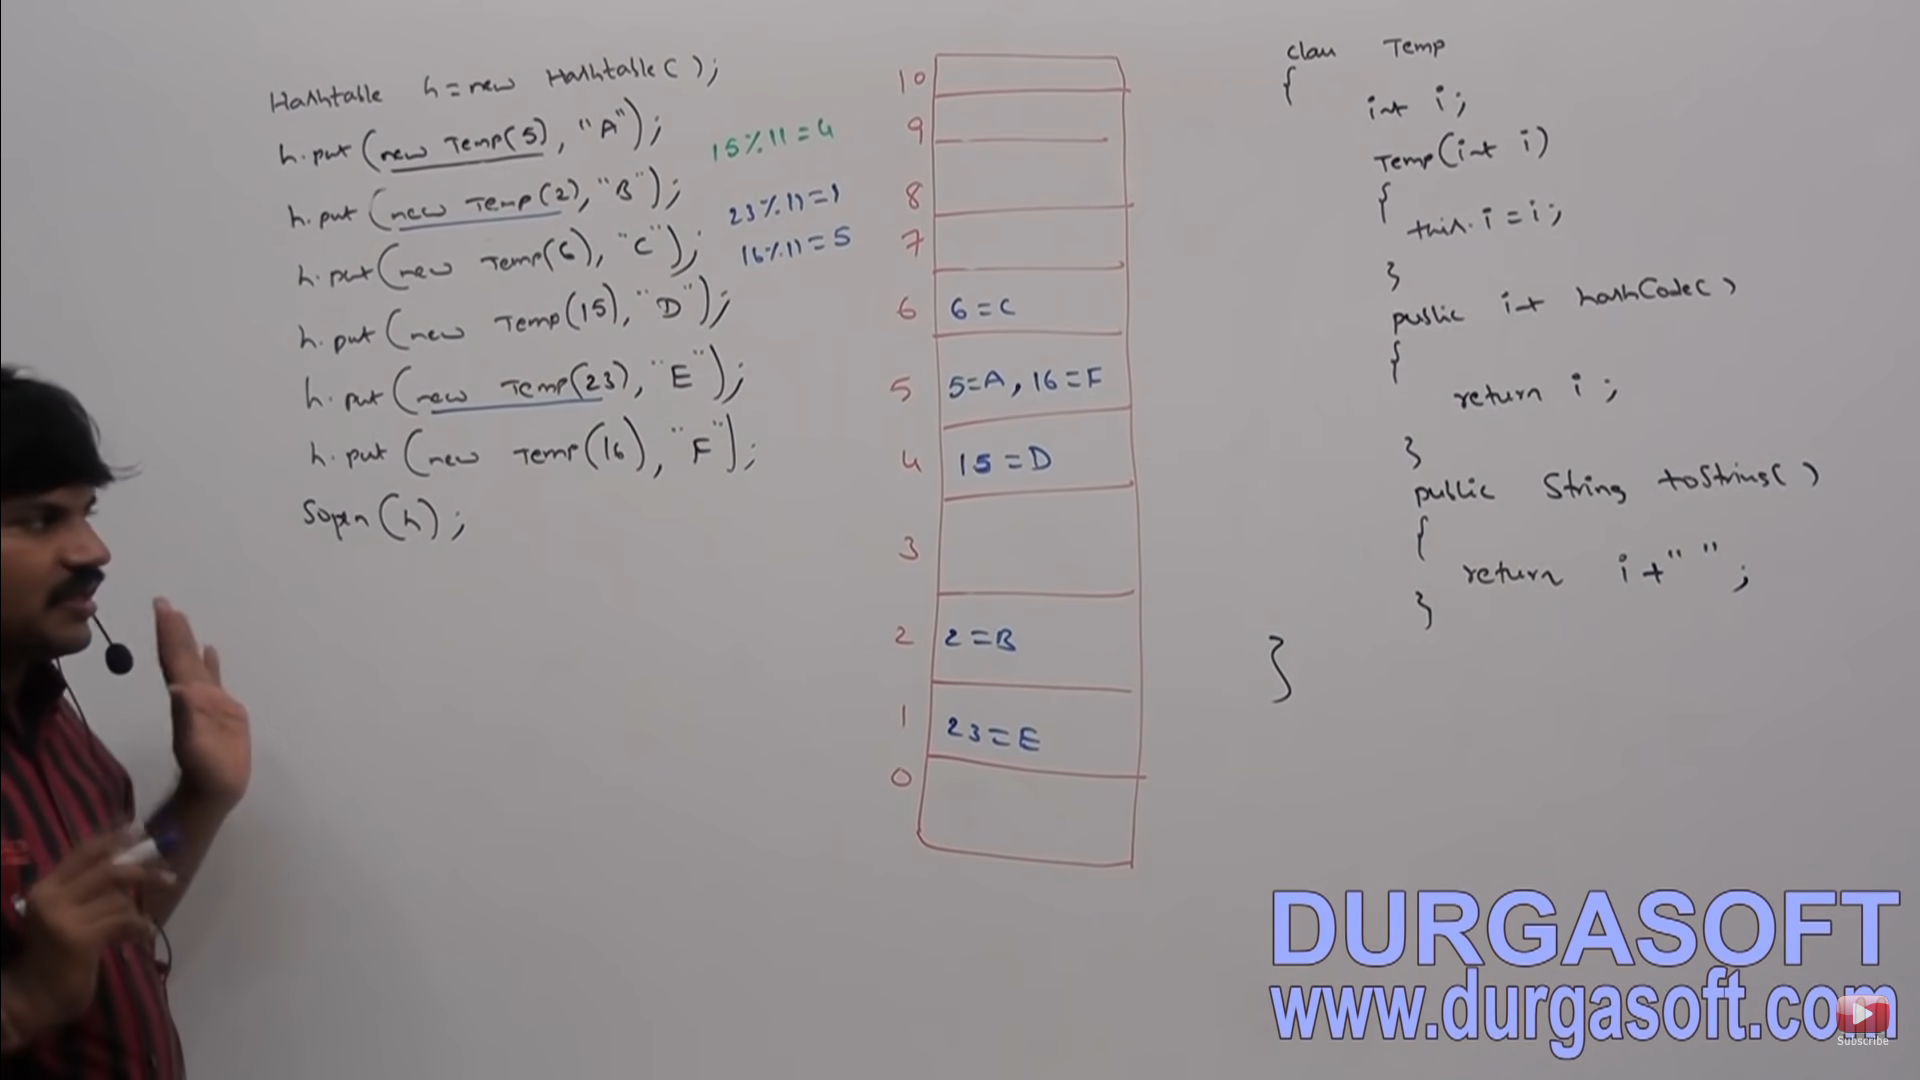 Hashtable h = new Hashtable( );
h.put (new Temp(5), "A");
h.put (new Temp(2), "B");
h.put (new Temp(6), "C");
h.put (new Temp(15), "D");
h.put (new Temp(23), "E");
h.put (new Temp(16), "F");
Sopln (h);
15%11=4
23%11=1
16%11=5
10
9
8
7
6 6=C
5 5=A, 16=F
4 15=D
3
2 2=B
1 23=E
0
class Temp
{
int i;
Temp(int i)
{
this.i=i;
}
public int hashCode( )
{
return i;
}
public String toString( )
{
return i+" ";
}
}
DURGASOFT
www.durgasoft.com
Subscribe